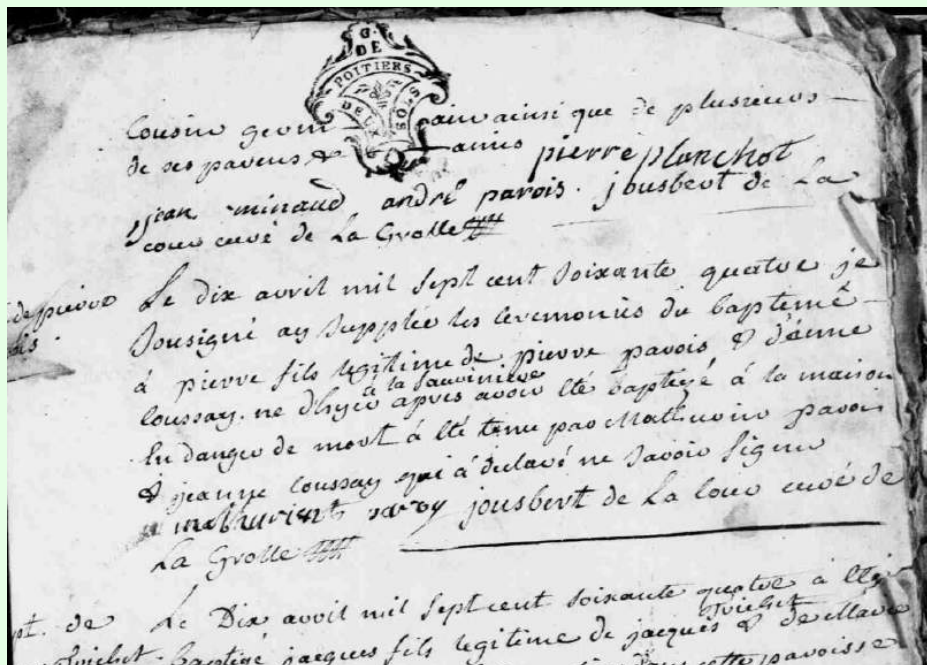 G.
DE
POITIERS
DEUX
SOLS
Cousin germ ain ainsi que de plusieurs
de ses parens & amis pierre planchot
jean minaud andré parois. jousbert de La
cour curé de La Grolle
de pierre
Le dix avril mil sept cent soixante quatre je
Sousigné ay Supplée les ceremonies du baptemê
à pierre fils legitime de pierre parois & d'enne
à la Sauviniere
coussay. ne d'hyer apres avoir été baptizé à la maison
En danger de mort à été tenu par Mathurin parois
& jeanne coussay qui à declaré ne Savoir Signer
mathurin paroy jousbert de La Cour curé de
La Grolle
pt. de Le Dix avril mil Sept cent soixante quatre à été
Trichet
Trichet baptizé jacques fils legitime de jacques & de Marie
cette paroisse